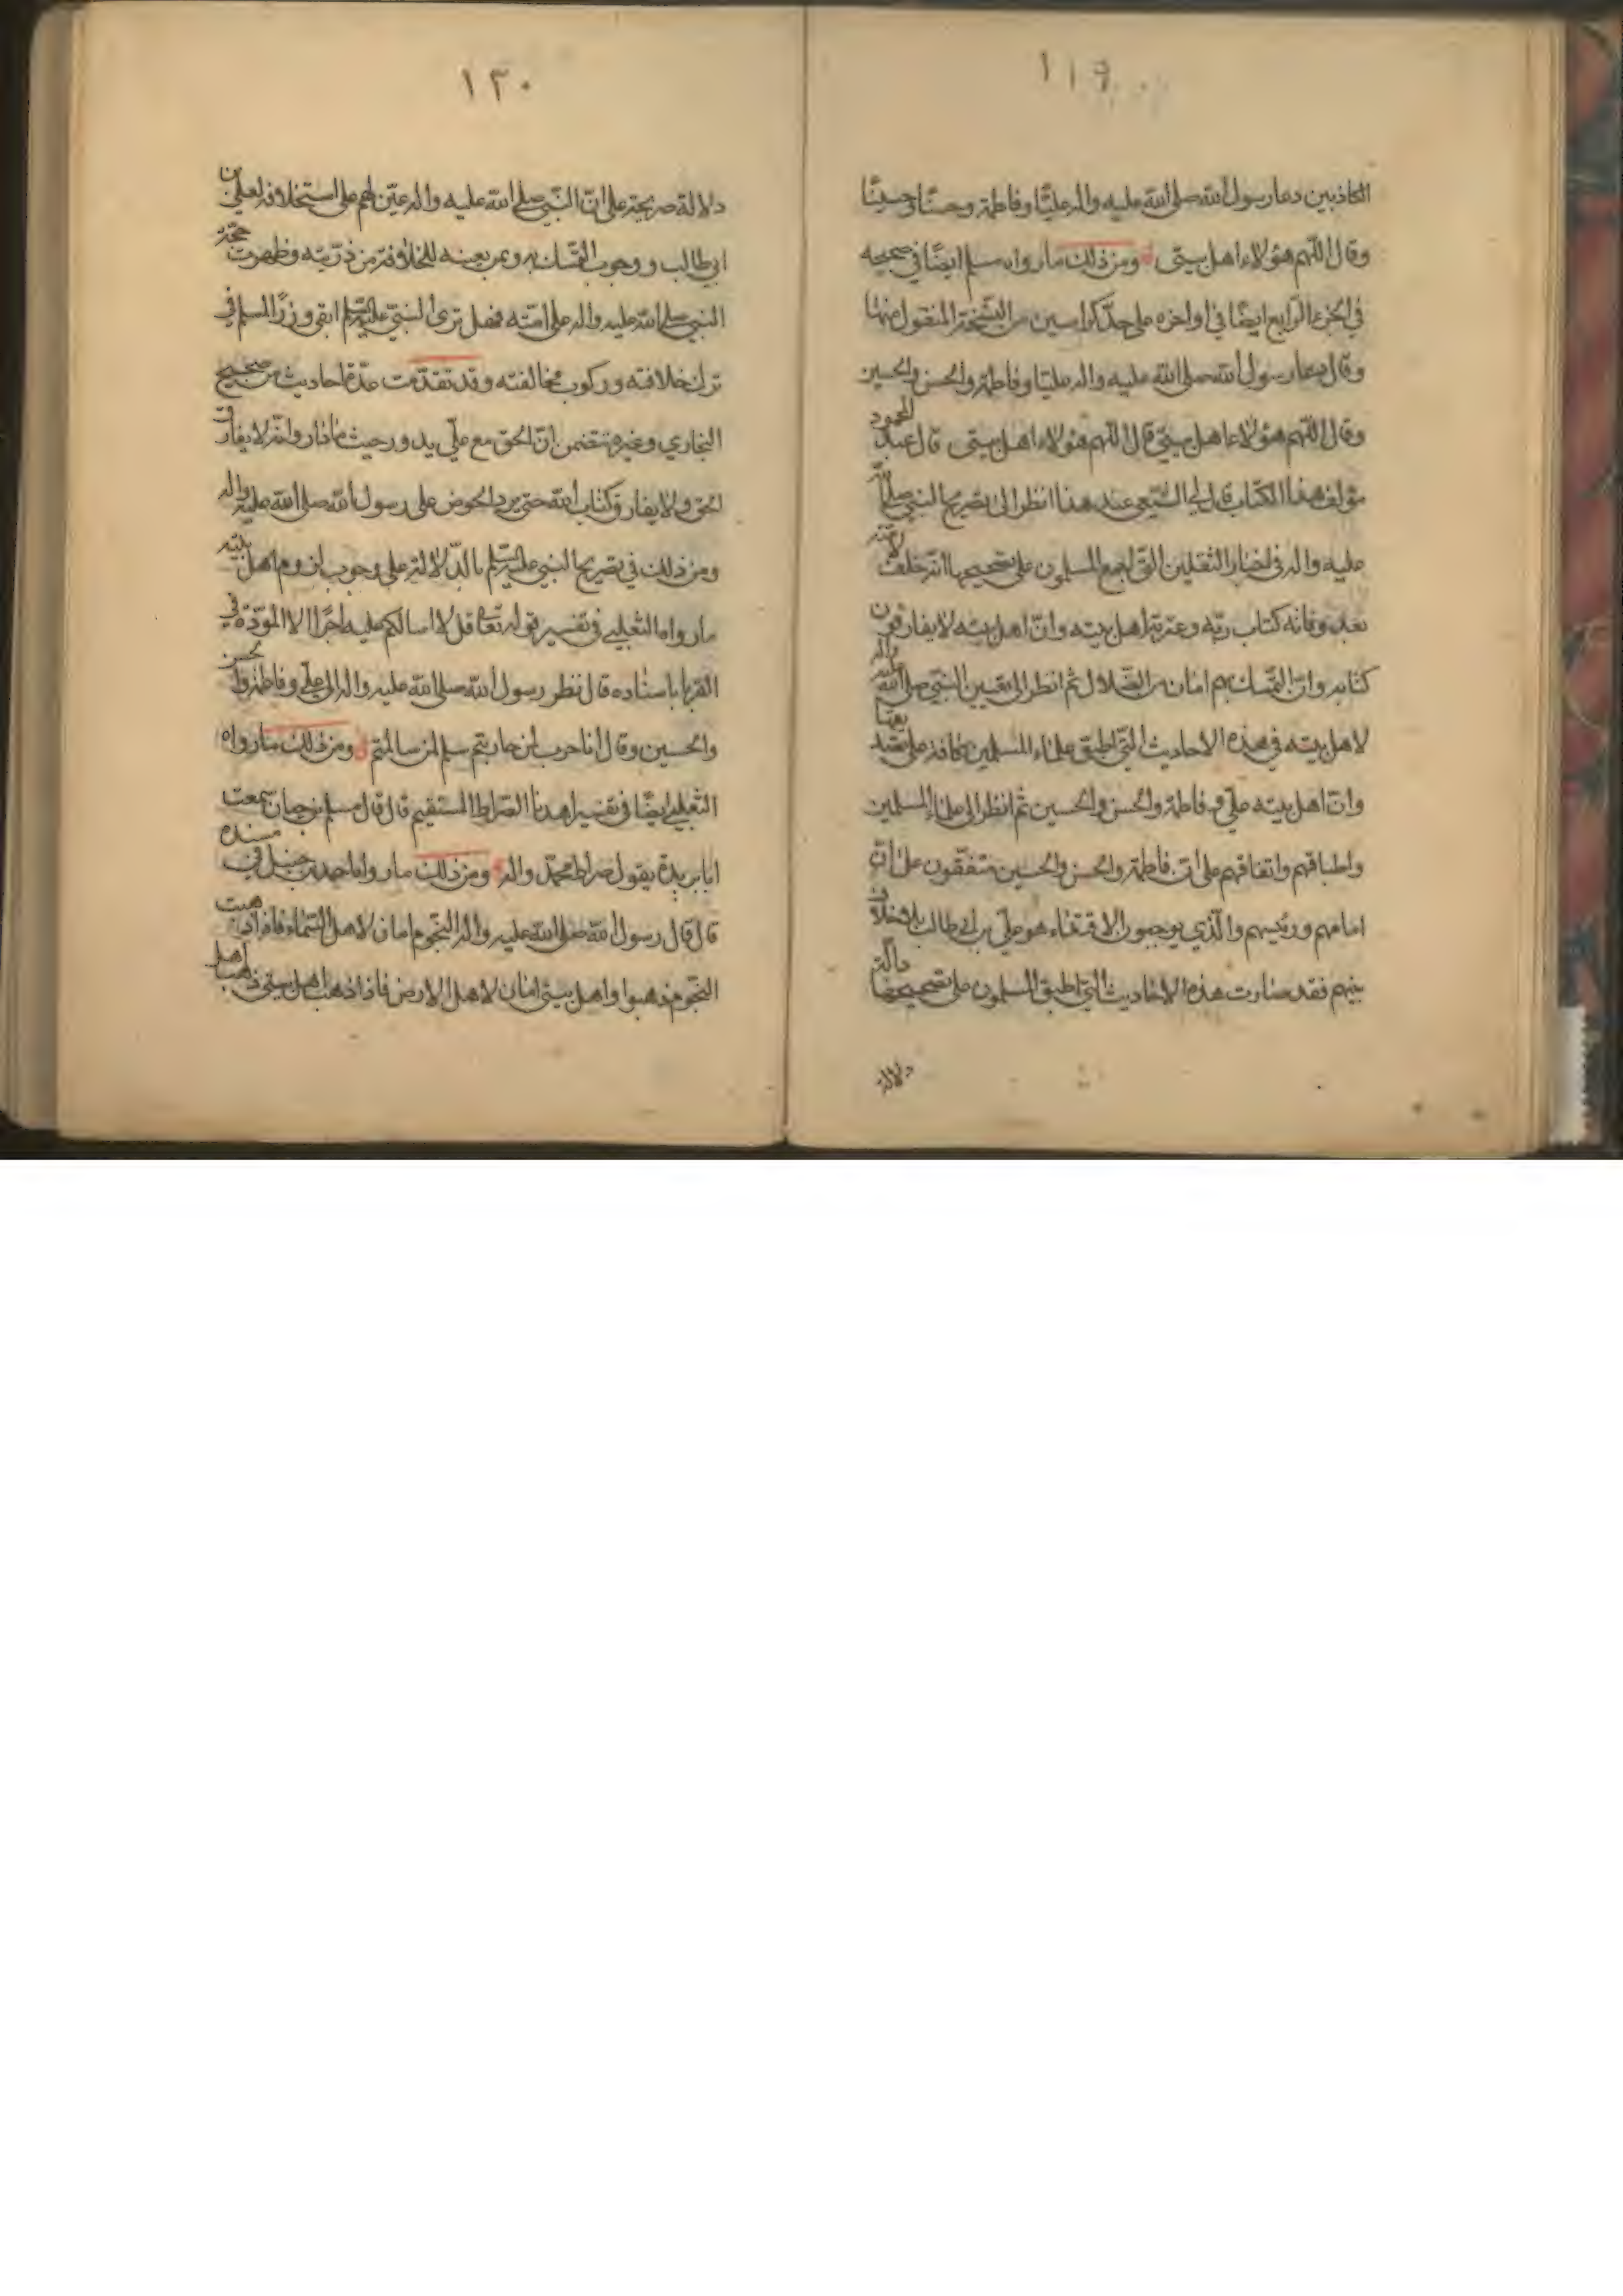 ١١٩
الكاذبين دعا رسول الله صلى الله عليه واله عليًّا وفاطمة وحسنًا وحسينًا
وقال اللهم هؤلاء اهل بيتى ومن ذلك ما رواه مسلم ايضًا في صحيحه
في الجزء الرابع ايضًا في اواخره على حدّ كراسين من النسخة المنقول منها
وقال دعا رسول الله صلى الله عليه واله عليًا وفاطمة والحسن والحسين
وقال اللهم هؤلاء اهل بيتي قال اللهم هؤلاء اهل بيتى قال عبد المحمود
مؤلف هذا الكتاب قال لي الشيعى عند هذا انظر الى تصريح النبي صلى الله
عليه واله في اخبار الثقلين التي اجمع المسلمون على تصحيحها انه خلف لامته
بعد وفاته كتاب ربّه وعترته اهل بيته وانّ اهل بيته لا يفارقون
كتابه وانّ التمسك بهم امان من الضلال ثم انظر الى تعيين النبي صلى الله عليه واله
لاهل بيته في هذه الاحاديث التي اطبق علماء المسلمين كافة على
وانّ اهل بيته علي وفاطمة والحسن والحسين ثم انظر الى علماء المسلمين
واطباقهم واتفاقهم على ان فاطمة والحسن والحسين متفقون على ان
امامهم ورئيسهم والذي يوجبون الاقتداء هو علي بن ابي طالب بلا خلاف
بينهم فقد صارت هذه الاحاديث التي اطبق المسلمون على تصحيحها دالّة
دلالة
١٢٠
دلالة صريحة على انّ النّبي صلى الله عليه واله عيّن لهم على استخلافه لعلي بن
ابي طالب ووجوب التمسك به وبمن يعينه للخلافة من ذرّيته وظهرت حجّة
النبي صلى الله عليه واله على امّته فهل ترى النبي عليه السلم ابقى وزرًا لمسلم في
ترك خلافته وركوب مخالفته وقد تقدّمت عدّة احاديث من صحيح
البخاري وغيره تتضمن انّ الحق مع علّي يدور حيث ما دار وانه لا يفارق
الحق ولا يفارق كتاب الله حتى يرد الحوض على رسول الله صلى الله عليه واله
ومن ذلك في تصريح النبي عليه السلم بالدّلالة على وجوب لزوم اهل بيته
ما رواه الثعلبي في تفسير قوله تعا قل لا اسالكم عليه اجرًا الا المودّة في
القربى باسناده قال نظر رسول الله صلى الله عليه واله الى علي وفاطمة والحسن
والحسين وقال انا حرب لمن حاربتم سلم لمن سالمتم ومن ذلك ما رواه
الثعلبي ايضًا في تفسير اهدنا الصّراط المستقيم قال قال مسلم بن حيان سمعت
ابا بريدة يقول صراط محمّد واله ومن ذلك ما رواه احمد بن حنبل في مسنده
قال قال رسول الله صلى الله عليه واله النجوم امان لاهل السّماء فاذا ذهبت
النجوم ذهبوا واهل بيتي امان لاهل الارض فاذا ذهب اهل بيتي ذهب اهل